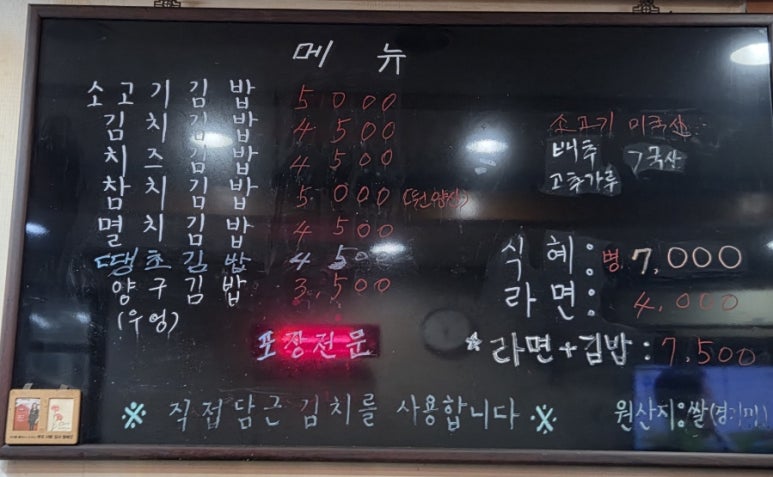 메 뉴
소고기김밥 5000
김치김밥 4500
치즈김밥 4500
참치김밥 5000 (원양산)
멸치김밥 4500
땡초김밥 4500
양구김밥 3,500
(우엉)
포장전문
소고기 미국산
배추 국산
고추가루
식혜: 병 7,000
라면: 4,000
*라면+김밥: 7,500
※ 직접담근 김치를 사용합니다 ※
원산지:쌀(경기미)